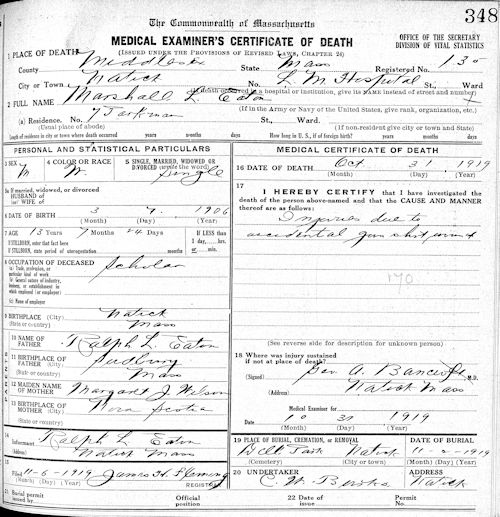 348
The Commonwealth of Massachusetts
MEDICAL EXAMINER'S CERTIFICATE OF DEATH
(ISSUED UNDER THE PROVISIONS OF REVISED LAWS, CHAPTER 24)
OFFICE OF THE SECRETARY
DIVISION OF VITAL STATISTICS
1 PLACE OF DEATH
County Middlesex State Mass Registered No. 130
City or Town Natick No. L. M. Hospital St., Ward
(If death occurred in a hospital or institution, give its NAME instead of street and number)
2 FULL NAME Marshall L. Eaton
(If in the Army or Navy of the United States, give rank, organization, etc.)
(a) Residence. No. 7 St., Ward
(Usual place of abode) (If non-resident give city or town and State)
Length of residence in city or town where death occurred years months days How long in U. S., if of foreign birth? years months days
PERSONAL AND STATISTICAL PARTICULARS
3 SEX M
4 COLOR OR RACE W.
5 SINGLE, MARRIED, WIDOWED OR DIVORCED (write the word) Single
5a If married, widowed, or divorced
HUSBAND of
(or) WIFE of
6 DATE OF BIRTH 3 7. 1906
(Month) (Day) (Year)
7 AGE 13 Years 7 Months 24 Days
If LESS than
1 day, hrs.
or min.
If STILLBORN, enter that fact here
If STILLBORN, state period of uterogestation months
8 OCCUPATION OF DECEASED Scholar
(a) Trade, profession, or
particular kind of work
(b) General nature of industry,
business, or establishment in
which employed (or employer)
(c) Name of employer
9 BIRTHPLACE (City) Natick
(State or country) Mass
10 NAME OF FATHER Ralph L. Eaton
11 BIRTHPLACE OF FATHER (City) Sudbury
(State or country) Mass
12 MAIDEN NAME OF MOTHER Margaret J. Wilson
13 BIRTHPLACE OF MOTHER (City) Nova Scotia
(State or country)
14
Informant Ralph L. Eaton
(Address) Natick Mass
15
Filed 11-6-1919 James H. Fleming
REGISTRAR
MEDICAL CERTIFICATE OF DEATH
16 DATE OF DEATH Oct 31 1919
(Month) (Day) (Year)
17
I HEREBY CERTIFY that I have investigated the
death of the person above-named and that the CAUSE AND MANNER
thereof are as follows:
Injuries due to
accidental gun shot wound
170
(See reverse side for description for unknown person)
18 Where was injury sustained
if not at place of death?
(Signed) Geo. A. Bancroft M.D.
(Address) Natick Mass
Medical Examiner for
Date 10 31 1919
(Month) (Day) (Year)
19 PLACE OF BURIAL, CREMATION, or REMOVAL
Dell Park Natick
(Cemetery) (City or town)
DATE OF BURIAL
11-2-1919
(Month) (Day) (Year)
20 UNDERTAKER
C. W.
ADDRESS
Natick
21 Burial permit
issued by
Official
position
22 Date of
issue
Permit
No.